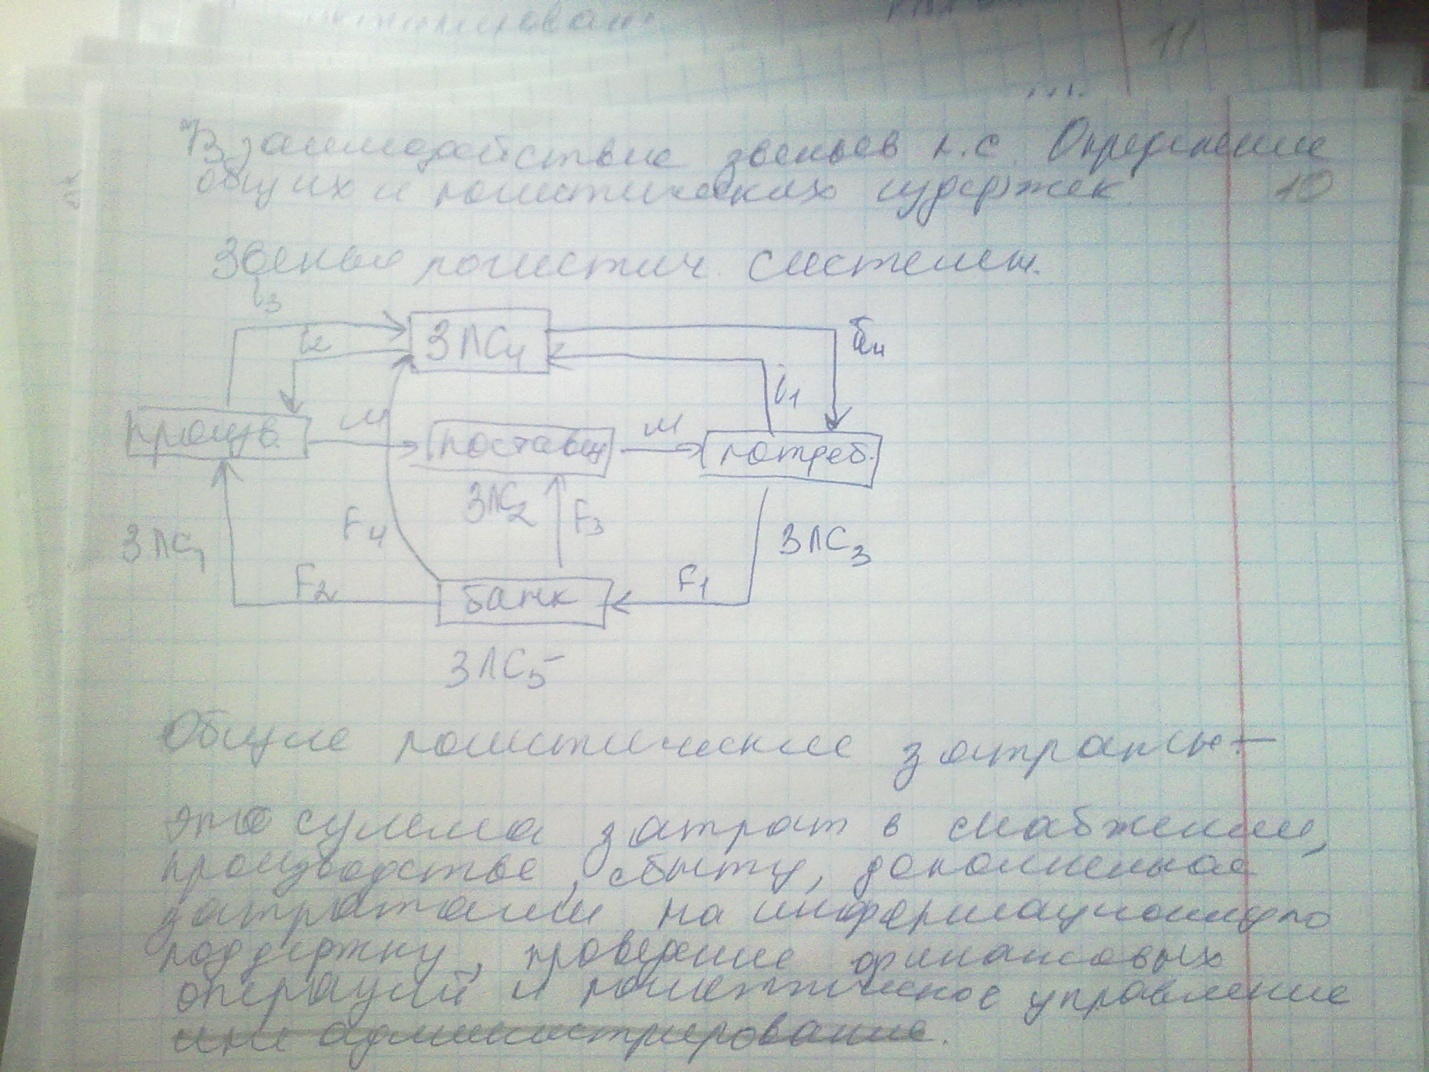 11
Взаимодействие звеньев л.с. Определение
общих и логистических издержек. 10
Звенья логистич. системы.
i3
i2
ЗЛС4
i4
i1
произв.
м
поставщ
м
потреб.
ЗЛС2
F3
F4
ЗЛС1
ЗЛС3
F2
банк
F1
ЗЛС5
Общие логистические затраты –
это сумма затрат в снабжении,
производстве, сбыту, дополненная
затратами на информационную
поддержку, проведение финансовых
операций и логистическое управление
или администрирование.